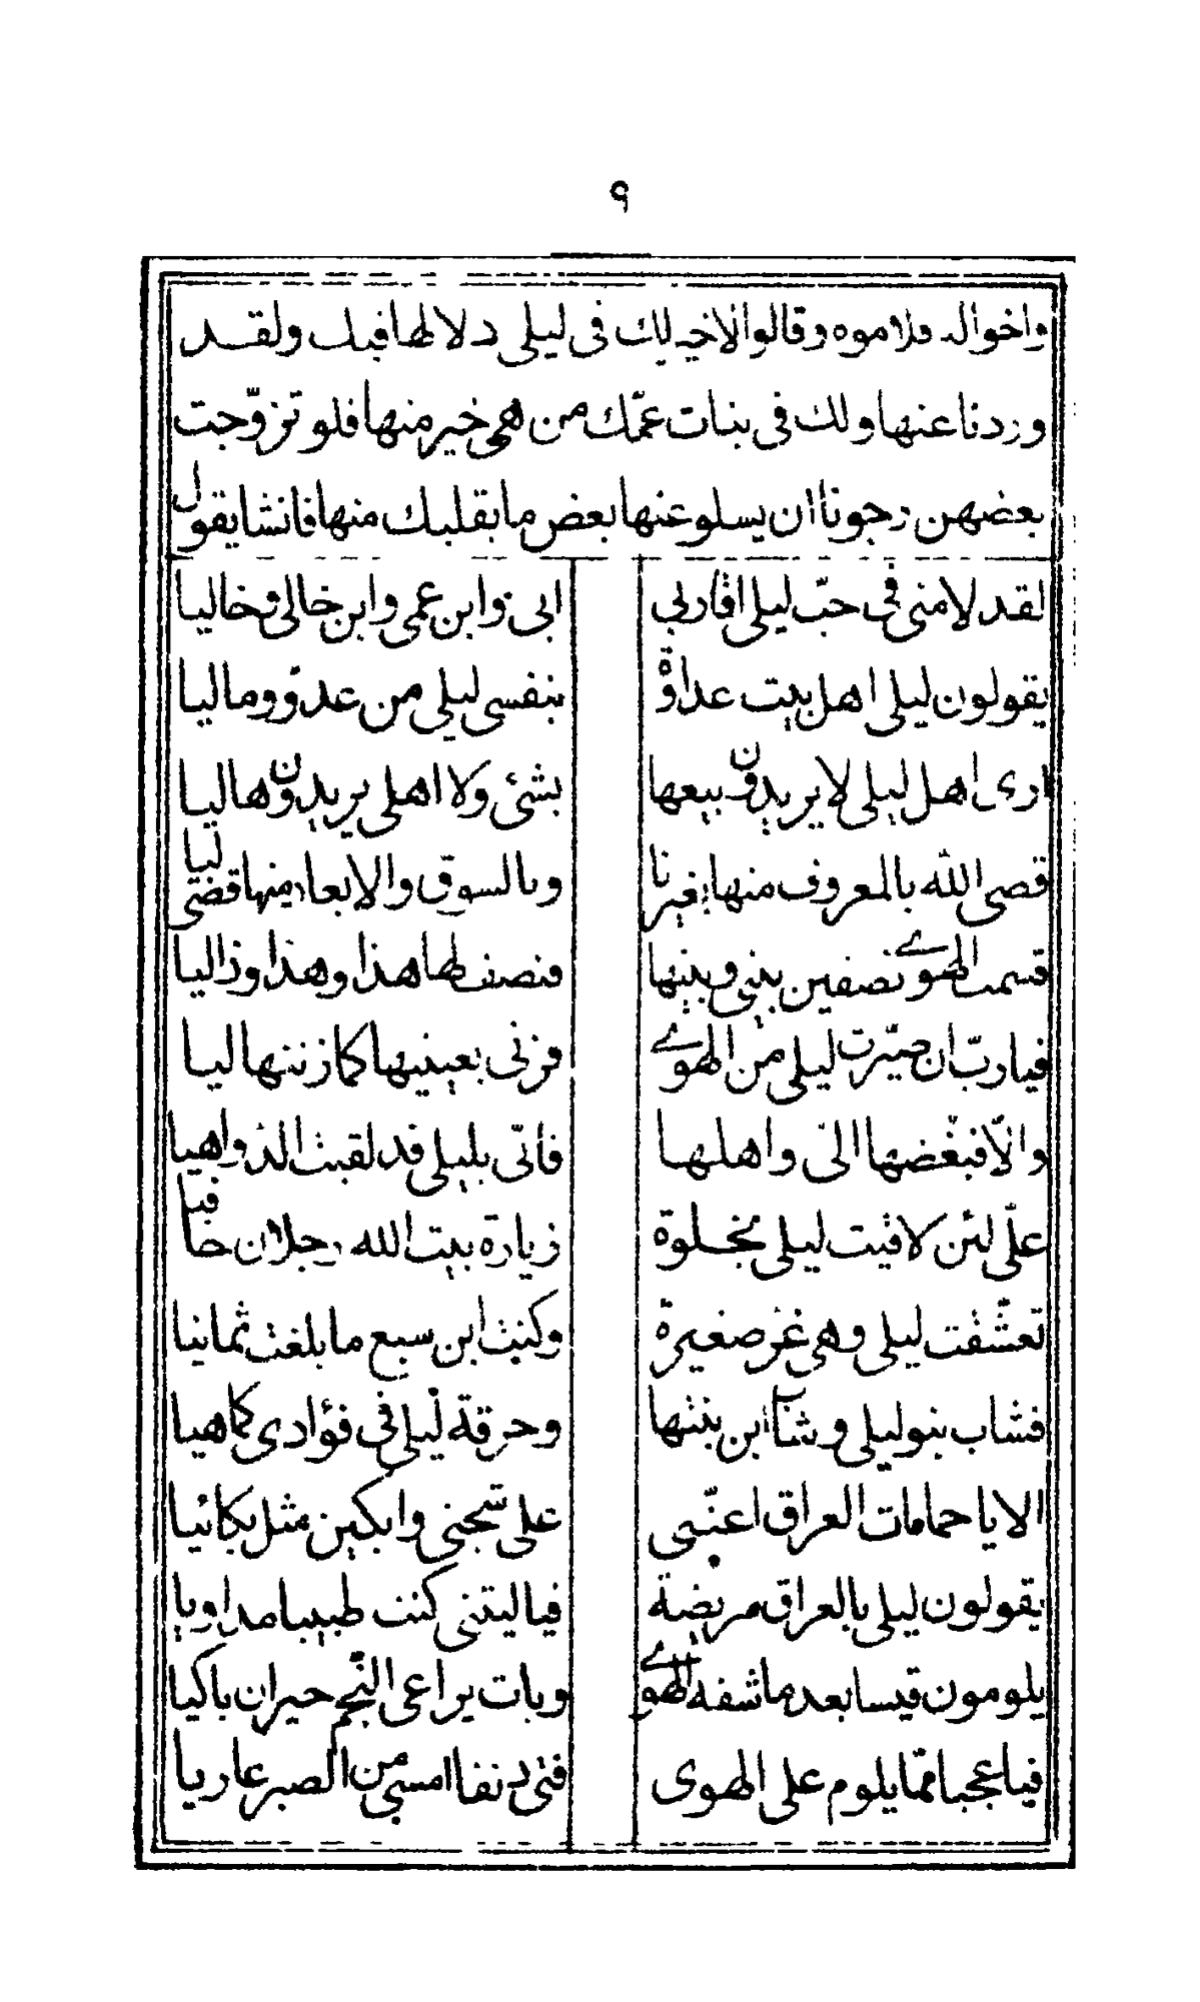 ٩
واخواله فلاموه وقالوا لا خير لك فى ليلى ولا لها فيك ولقد
وردنا عنها ولك فى بنات عمّك من هى خير منها فلو تزوّجت
بعضهن رجونا ان يسلو عنها بعض ما بقلبك منها فانشا يقول
لقد لامنى فى حبّ ليلى اقاربى ابى وابن عمى وابن خالى وخاليا
يقولون ليلى اهل بيت عداوة بنفسى ليلى من عدوّ وماليا
ارى اهل ليلى لا يريدون بيعها بشئ ولا اهلى يريدونها ليا
قضى الله بالمعروف منها لغيرنا وبالسوق والابعاد منها قضى ليا
قسمت الهوى نصفين بينى وبينها فنصف لها هذا وهذا وذا ليا
فيا ربّ ان صيّرت ليلى من الهوى فزنى بعينيها كما زنتها ليا
والّا فبغّضها الىّ واهلها فانّى بليلى قد لقيت الدواهيا
علىّ لئن لاقيت ليلى بخلوة زيارة بيت الله رجلان حافيا
تعشّقت ليلى وهى غرّ صغيرة وكنت ابن سبع ما بلغت ثمانيا
فشاب بنو ليلى وشاب ابن بنتها وحرقة ليلى فى فؤادى كما هيا
الا يا حمامات العراق اعنّنى على شجنى وابكين مثل بكائيا
يقولون ليلى بالعراق مريضة فيا ليتنى كنت طبيبا مداويا
يلومون قيسا بعد ما شفه الهوى وبات يراعى النجم حيران باكيا
فيا عجبا ممّا يلوم على الهوى فتى دنفا امسى من الصبر عاريا